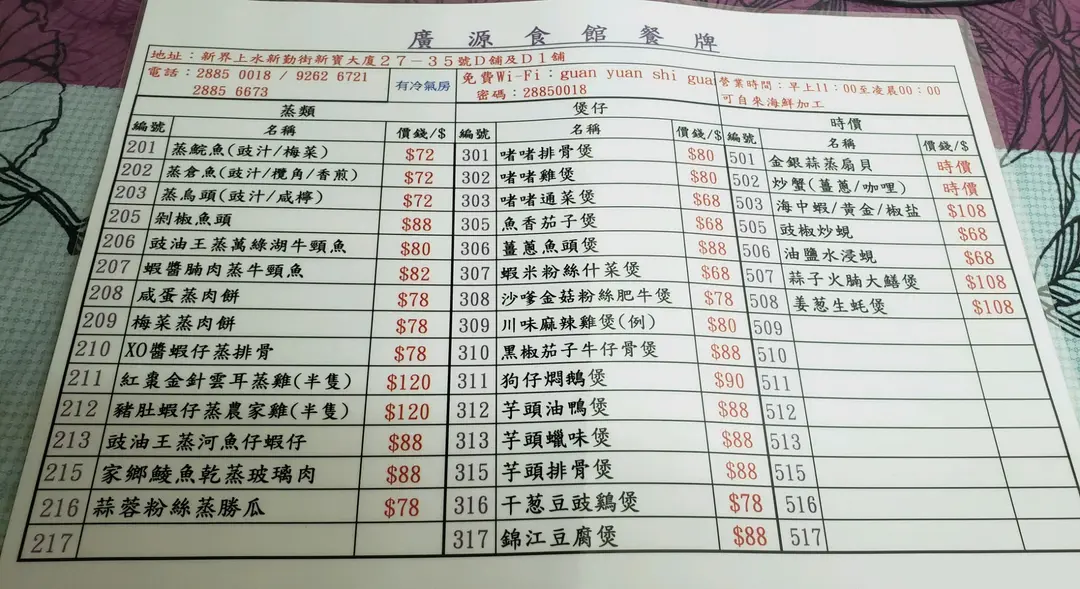 廣源食館餐牌
地址：新界上水新勤街新寶大廈27－35號D舖及D1舖
電話：2885 0018 / 9262 6721
2885 6673
有冷氣房
免費Wi-Fi：guan yuan shi gua
密碼：28850018
營業時間：早上11：00至凌晨00：00
可自來海鮮加工
蒸類
編號 名稱 價錢/$
201 蒸鯇魚(豉汁/梅菜) $72
202 蒸倉魚(豉汁/欖角/香煎) $72
203 蒸烏頭(豉汁/咸檸) $72
205 剁椒魚頭 $88
206 豉油王蒸萬綠湖牛頸魚 $80
207 蝦醬腩肉蒸牛頸魚 $82
208 咸蛋蒸肉餅 $78
209 梅菜蒸肉餅 $78
210 XO醬蝦仔蒸排骨 $78
211 紅棗金針雲耳蒸雞(半隻) $120
212 豬肚蝦仔蒸農家雞(半隻) $120
213 豉油王蒸河魚仔蝦仔 $88
215 家鄉鯪魚乾蒸玻璃肉 $88
216 蒜蓉粉絲蒸勝瓜 $78
217
煲仔
編號 名稱 價錢/$
301 啫啫排骨煲 $80
302 啫啫雞煲 $80
303 啫啫通菜煲 $68
305 魚香茄子煲 $68
306 薑蔥魚頭煲 $88
307 蝦米粉絲什菜煲 $68
308 沙嗲金菇粉絲肥牛煲 $78
309 川味麻辣雞煲(例) $80
310 黑椒茄子牛仔骨煲 $88
311 狗仔燜鵝煲 $90
312 芋頭油鴨煲 $88
313 芋頭蠟味煲 $88
315 芋頭排骨煲 $88
316 干葱豆豉鷄煲 $78
317 錦江豆腐煲 $88
時價
編號 名稱 價錢/$
501 金銀蒜蒸扇貝 時價
502 炒蟹(薑蔥/咖哩) 時價
503 海中蝦/黃金/椒盐 $108
505 豉椒炒蜆 $68
506 油鹽水浸蜆 $68
507 蒜子火腩大鱔煲 $108
508 姜葱生蚝煲 $108
509
510
511
512
513
515
516
517